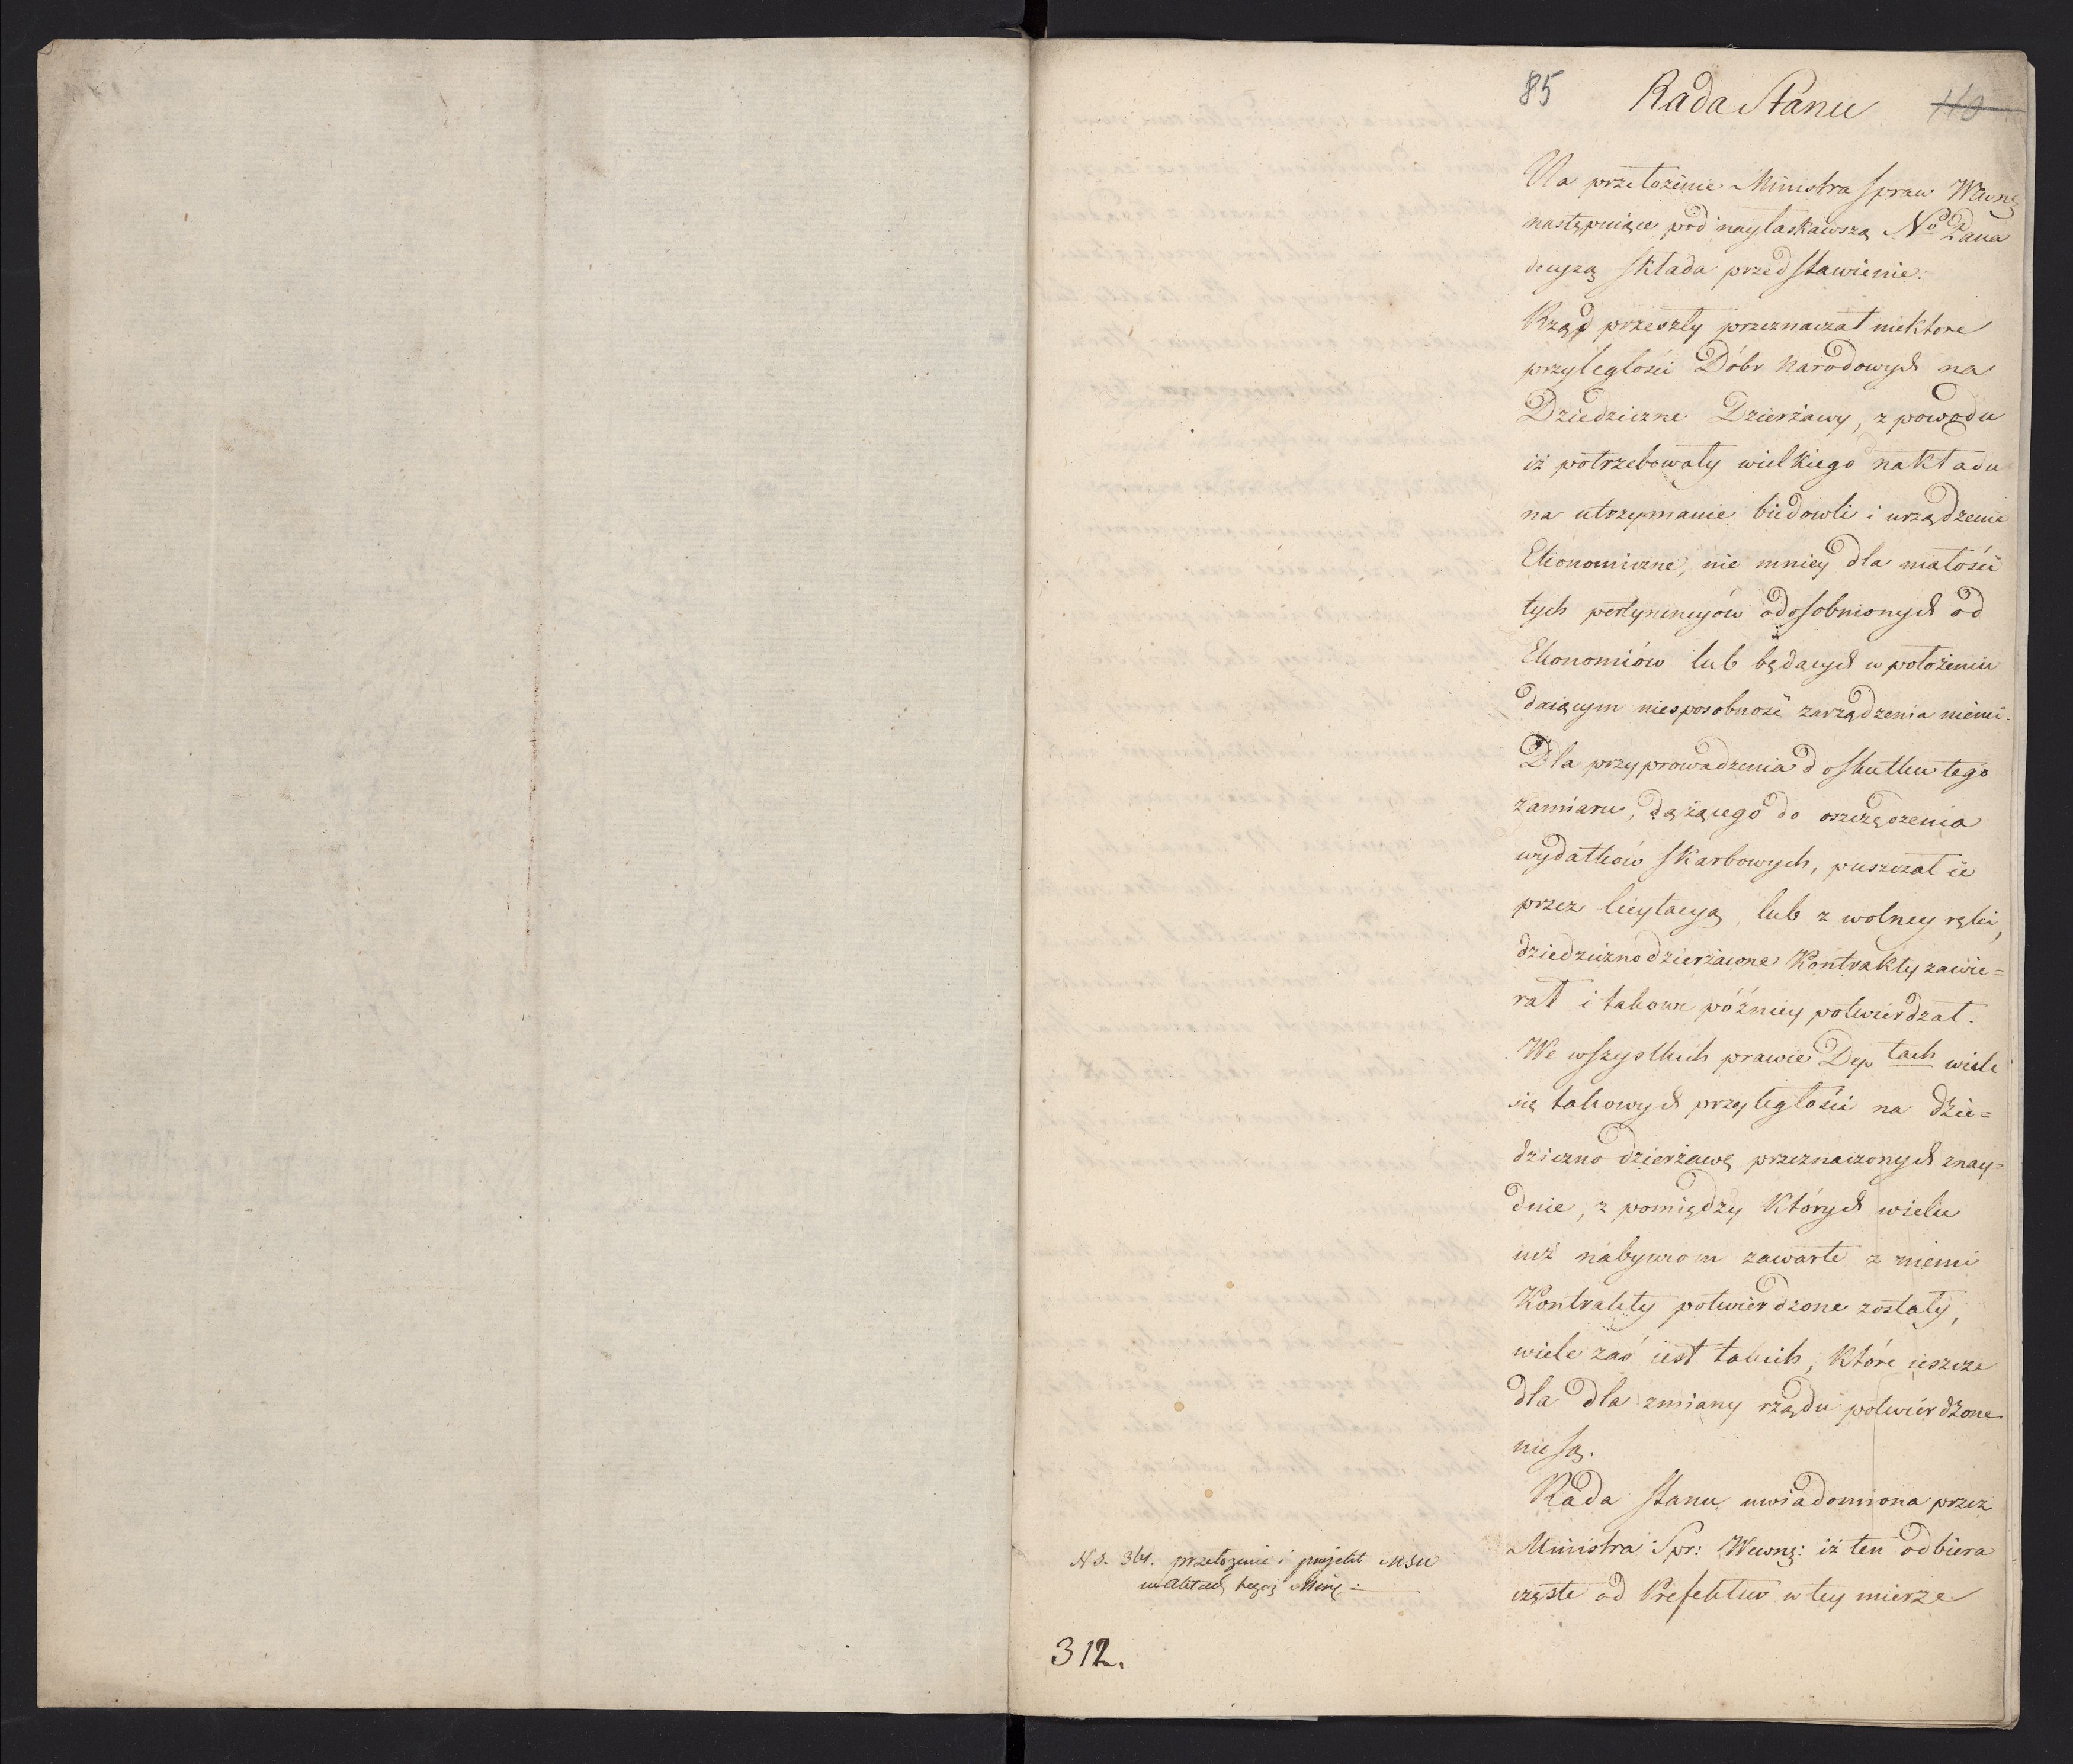 85 Rada Stanu 110
Na przełożenie Ministra Spraw Wewnę
następuiące pod nayłaskawszą No Pana
decyzą składa przedstawienie:
Rząd przeszły przeznaczał niektore
przyległości Dóbr Narodowych na
Dziedziczne Dzierżawy, z powodu
iż potrzebowały wielkiego nakładu
na utrzymanie budowli i urządzenie
Ekonomiczne, nie mniey dla małości
tych pertynencyów odosobnionych od
Ekonomiów lub będących w położeniu
daiącym niesposobność zarządzenia niemi.
Dla przyprowadzenia do skutku tego
zamiaru, dążącego do oszczędzenia
wydatków skarbowych, puszczał ie
przez licytacyą lub z wolney ręki,
dziedziczno dzierżawne Kontrakty zawie=
rał i takowe późniey potwierdzał.
We wszystkich prawie Deptach wiele
się takowych przyległości na dzie=
dziczno dzierżawę przeznaczonych znay=
duie, z pomiędzy których wielu
iuż nabywcom zawarte z niemi
Kontrakty potwierdzone zostały,
wiele zaś iest takich, które ieszcze
dla dla zmiany rządu potwierdzone
nie są.
Rada Stanu uwiadomiona przez
Ministra Spr: Wewnę: iż ten odbiera
częste od Prefektów w tey mierze
N S. 364. przełożenie i projekt MSW
w aktach tegoż Miny:
312.